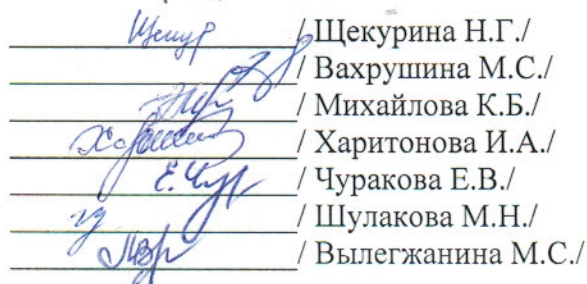 / Щекурина Н.Г./
/ Вахрушина М.С./
/ Михайлова К.Б./
/ Харитонова И.А./
Е. Чур / Чуракова Е.В./
/ Шулакова М.Н./
/ Вылегжанина М.С./